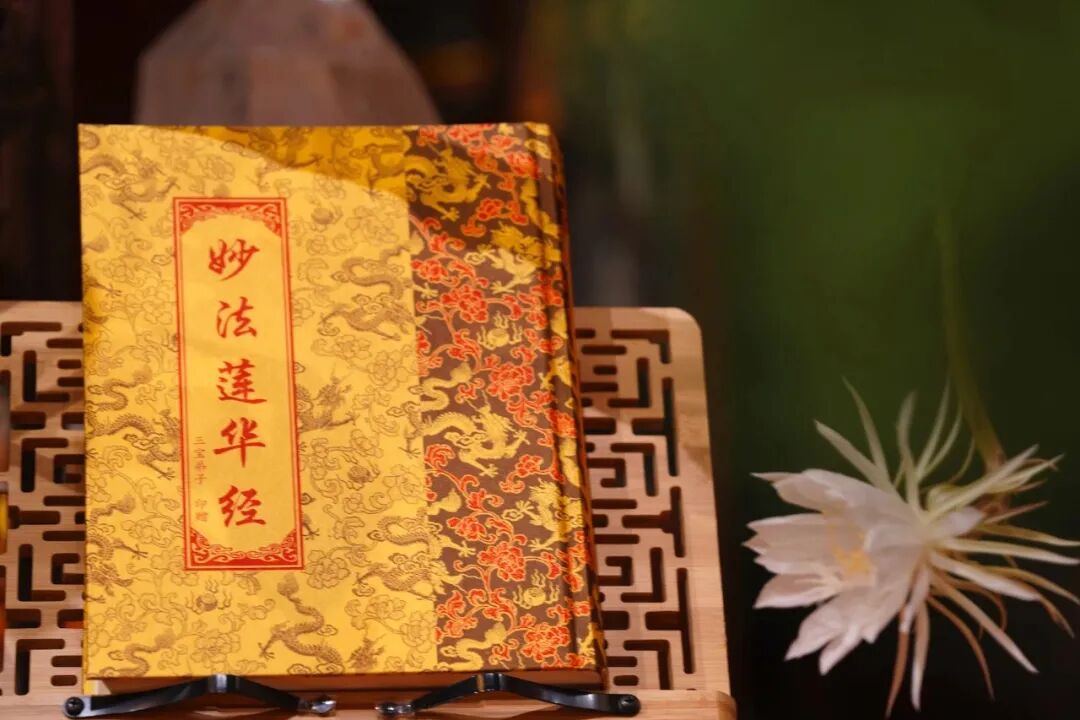 妙法莲华经
三宝弟子 印赠